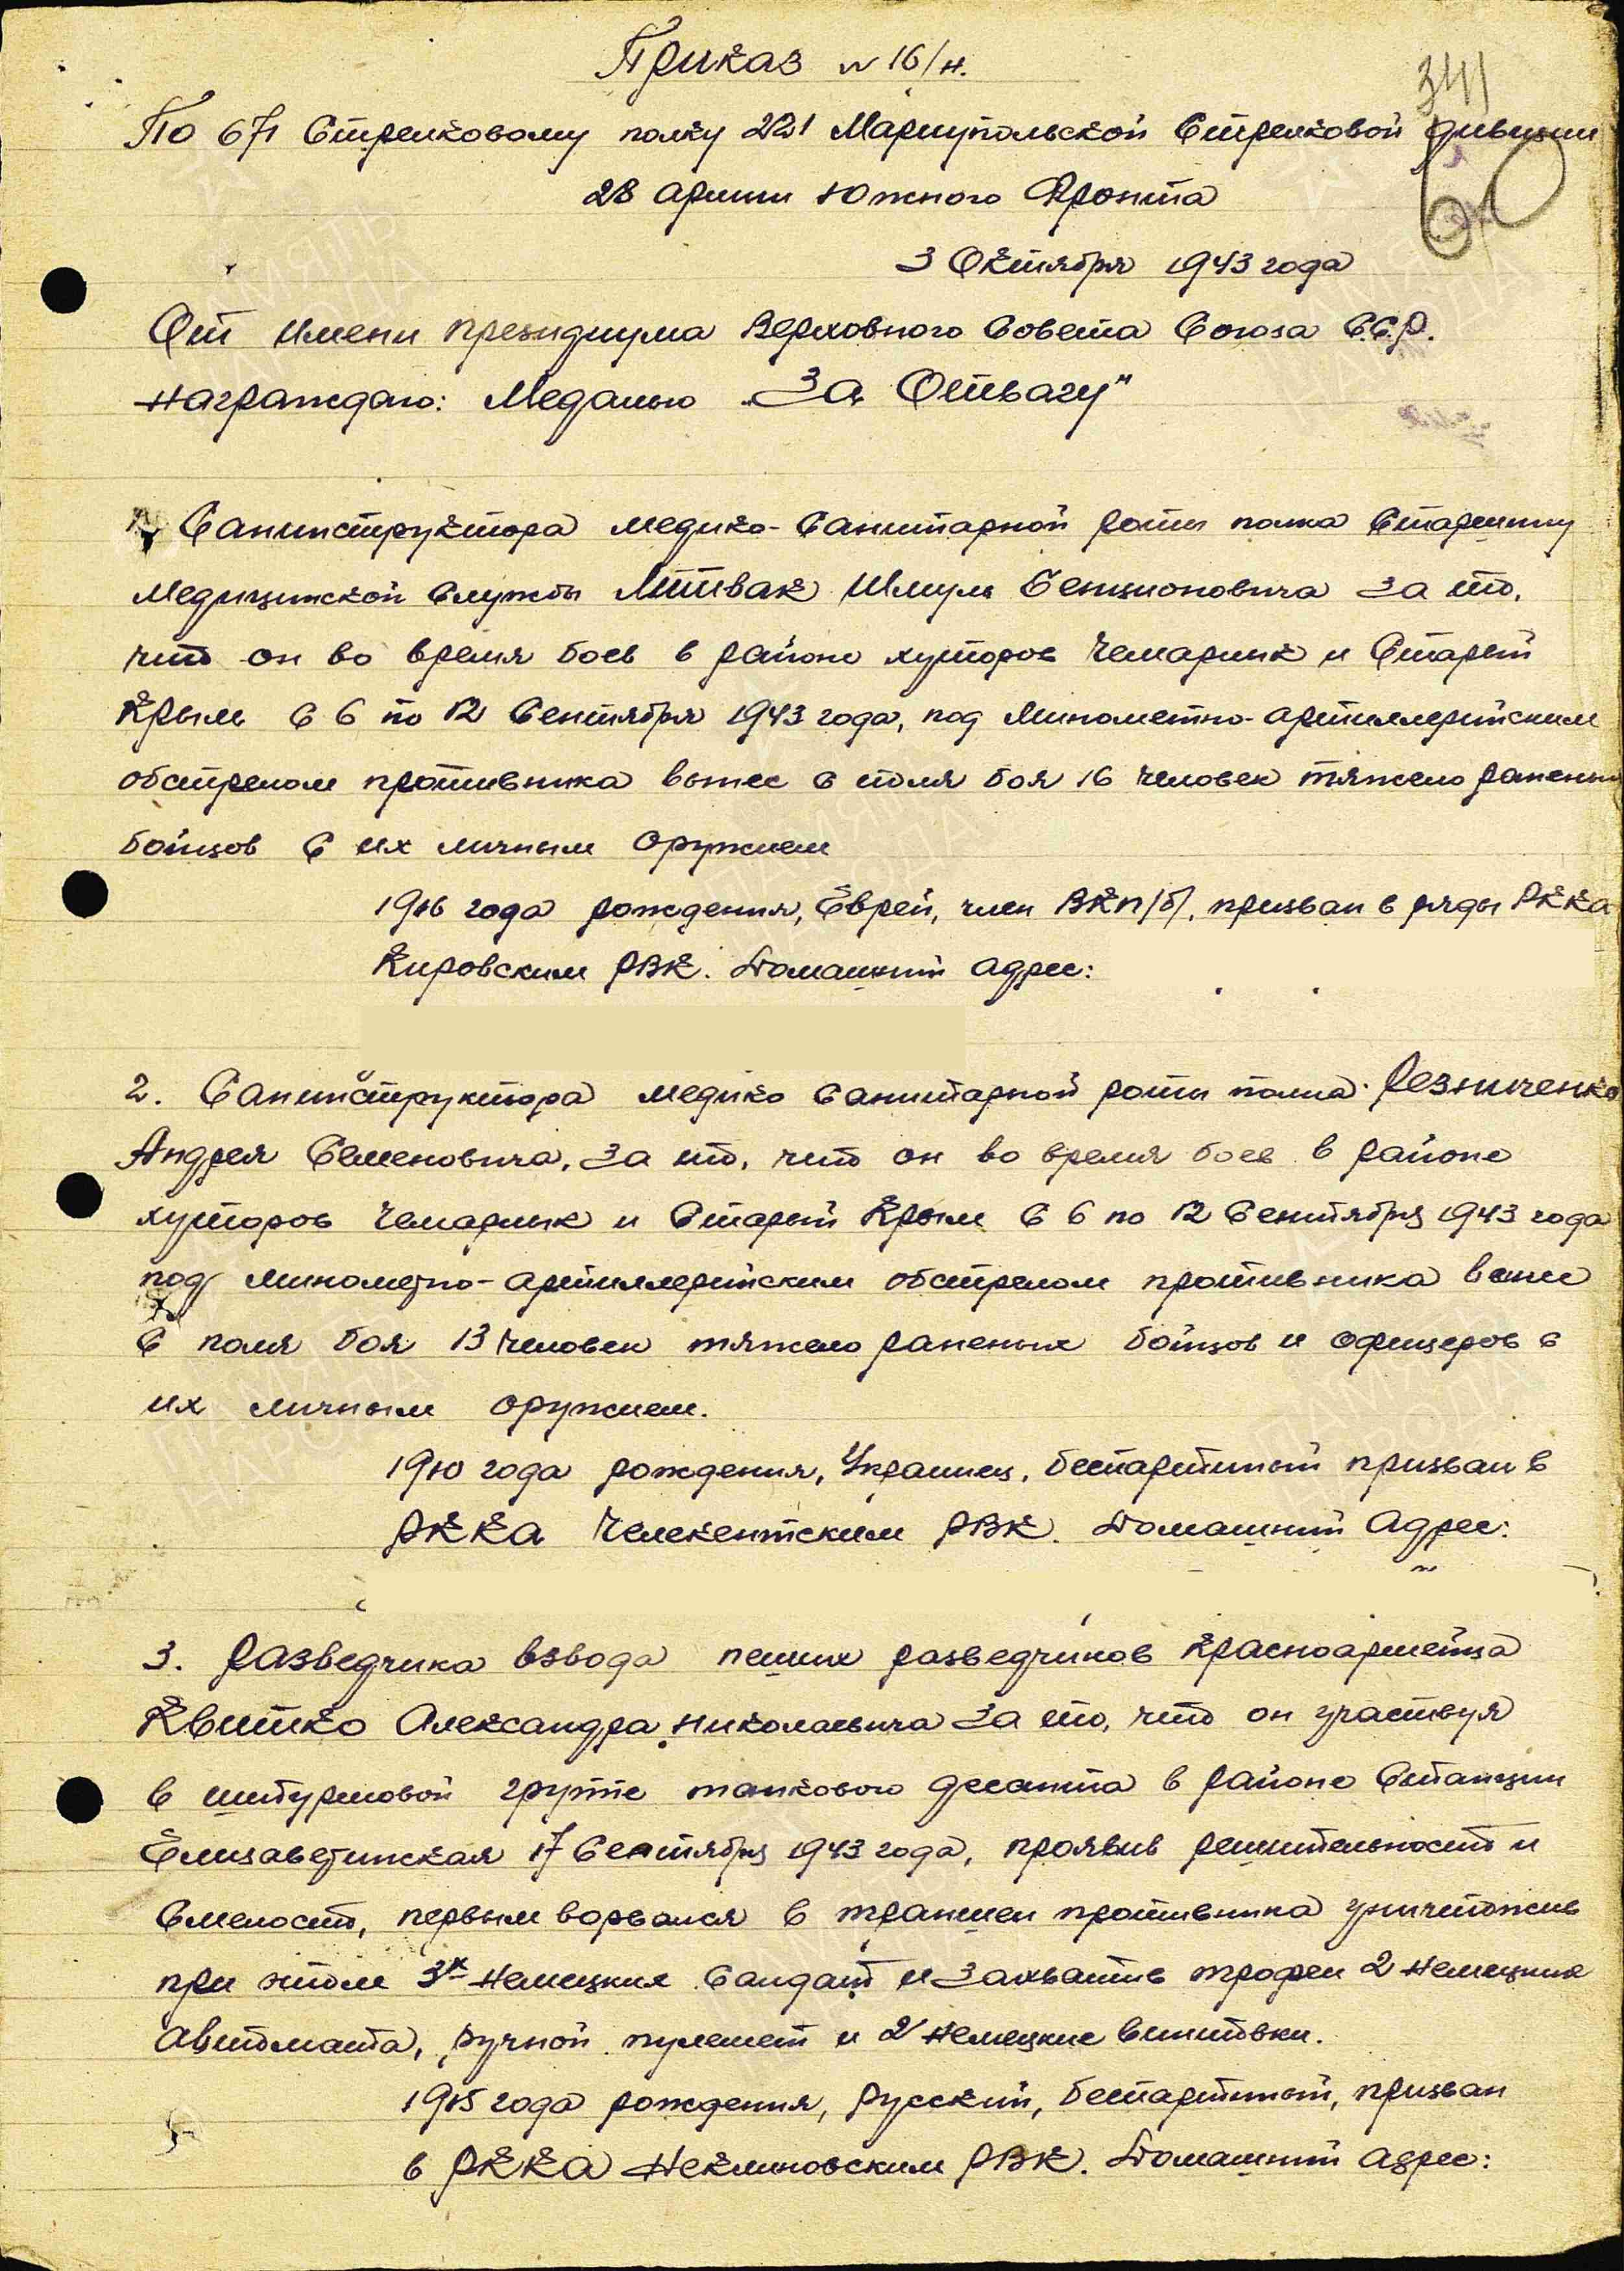 Приказ N 16/н.
341
По 671 Стрелковому полку 221 Мариупольской Стрелковой дивизии
60
28 армии Южного Фронта
3 Октября 1943 года
От имени президиума Верховного Совета Союза С.С.Р.
награждаю: Медалью „За Отвагу"
1. Санинструктора медико-санитарной роты полка Старшину
медицинской службы Литвак Шмуль Бенционовича за то,
что он во время боев в районе хуторов Чемарлык и Старый
Крым с 6 по 12 Сентября 1943 года, под минометно-артиллерийским
обстрелом противника вынес с поля боя 16 человек тяжело раненых
бойцов с их личным оружием
1916 года рождения, Еврей, член ВКП/б/, призван в ряды РККА
Кировским РВК. Домашний адрес:
2. Санинструктора медико санитарной роты полка Резниченко
Андрея Семеновича, за то, что он во время боев в районе
хуторов Чемарлык и Старый Крым с 6 по 12 Сентября 1943 года
под минометно-артиллерийским обстрелом противника вынес
с поля боя 13 человек тяжело раненых бойцов и офицеров с
их личным оружием.
1910 года рождения, Украинец, беспартийный призван в
РККА Чемкентским РВК. Домашний Адрес:
3. Разведчика взвода пеших разведчиков Красноармейца
Квитко Александра Николаевича за то, что он участвуя
в штурмовой группе танкового десанта в районе Станции
Елизаветинская 17 Сентября 1943 года, проявив решительность и
Смелость, первым ворвался в траншеи противника уничтожив
при этом 3х немецких Салдат и захватив трофеи 2 немецких
автомата, ручной пулемет и 2 немецкие винтовки.
1915 года рождения, русский, беспартийный, призван
в РККА Неклиновским РВК. Домашний адрес: